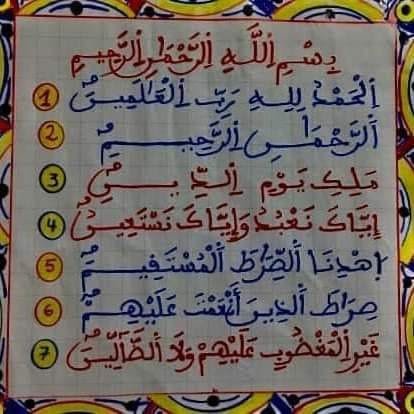 بِسْمِ اِ۬للَّهِ اِ۬لرَّحْمَٰنِ اِ۬لرَّحِيمِ
1 اَ۬لْحَمْدُ لِلهِ رَبِّ اِ۬لْعَٰلَمِينَ
2 اَ۬لرَّحْمَٰنِ اِ۬لرَّحِيمِ
3 مَلِكِ يَوْمِ اِ۬لدِّينِ
4 إِيَّاكَ نَعْبُدُ وَإِيَّاكَ نَسْتَعِينُ
5 اِهْدِنَا اَ۬لصِّرَٰطَ اَ۬لْمُسْتَقِيمَ
6 صِرَٰطَ اَ۬لذِينَ أَنْعَمْتَ عَلَيْهِمْ
7 غَيْرِ اِ۬لْمَغْضُوبِ عَلَيْهِمْ وَلَا اَ۬لضَّآلِّينَ